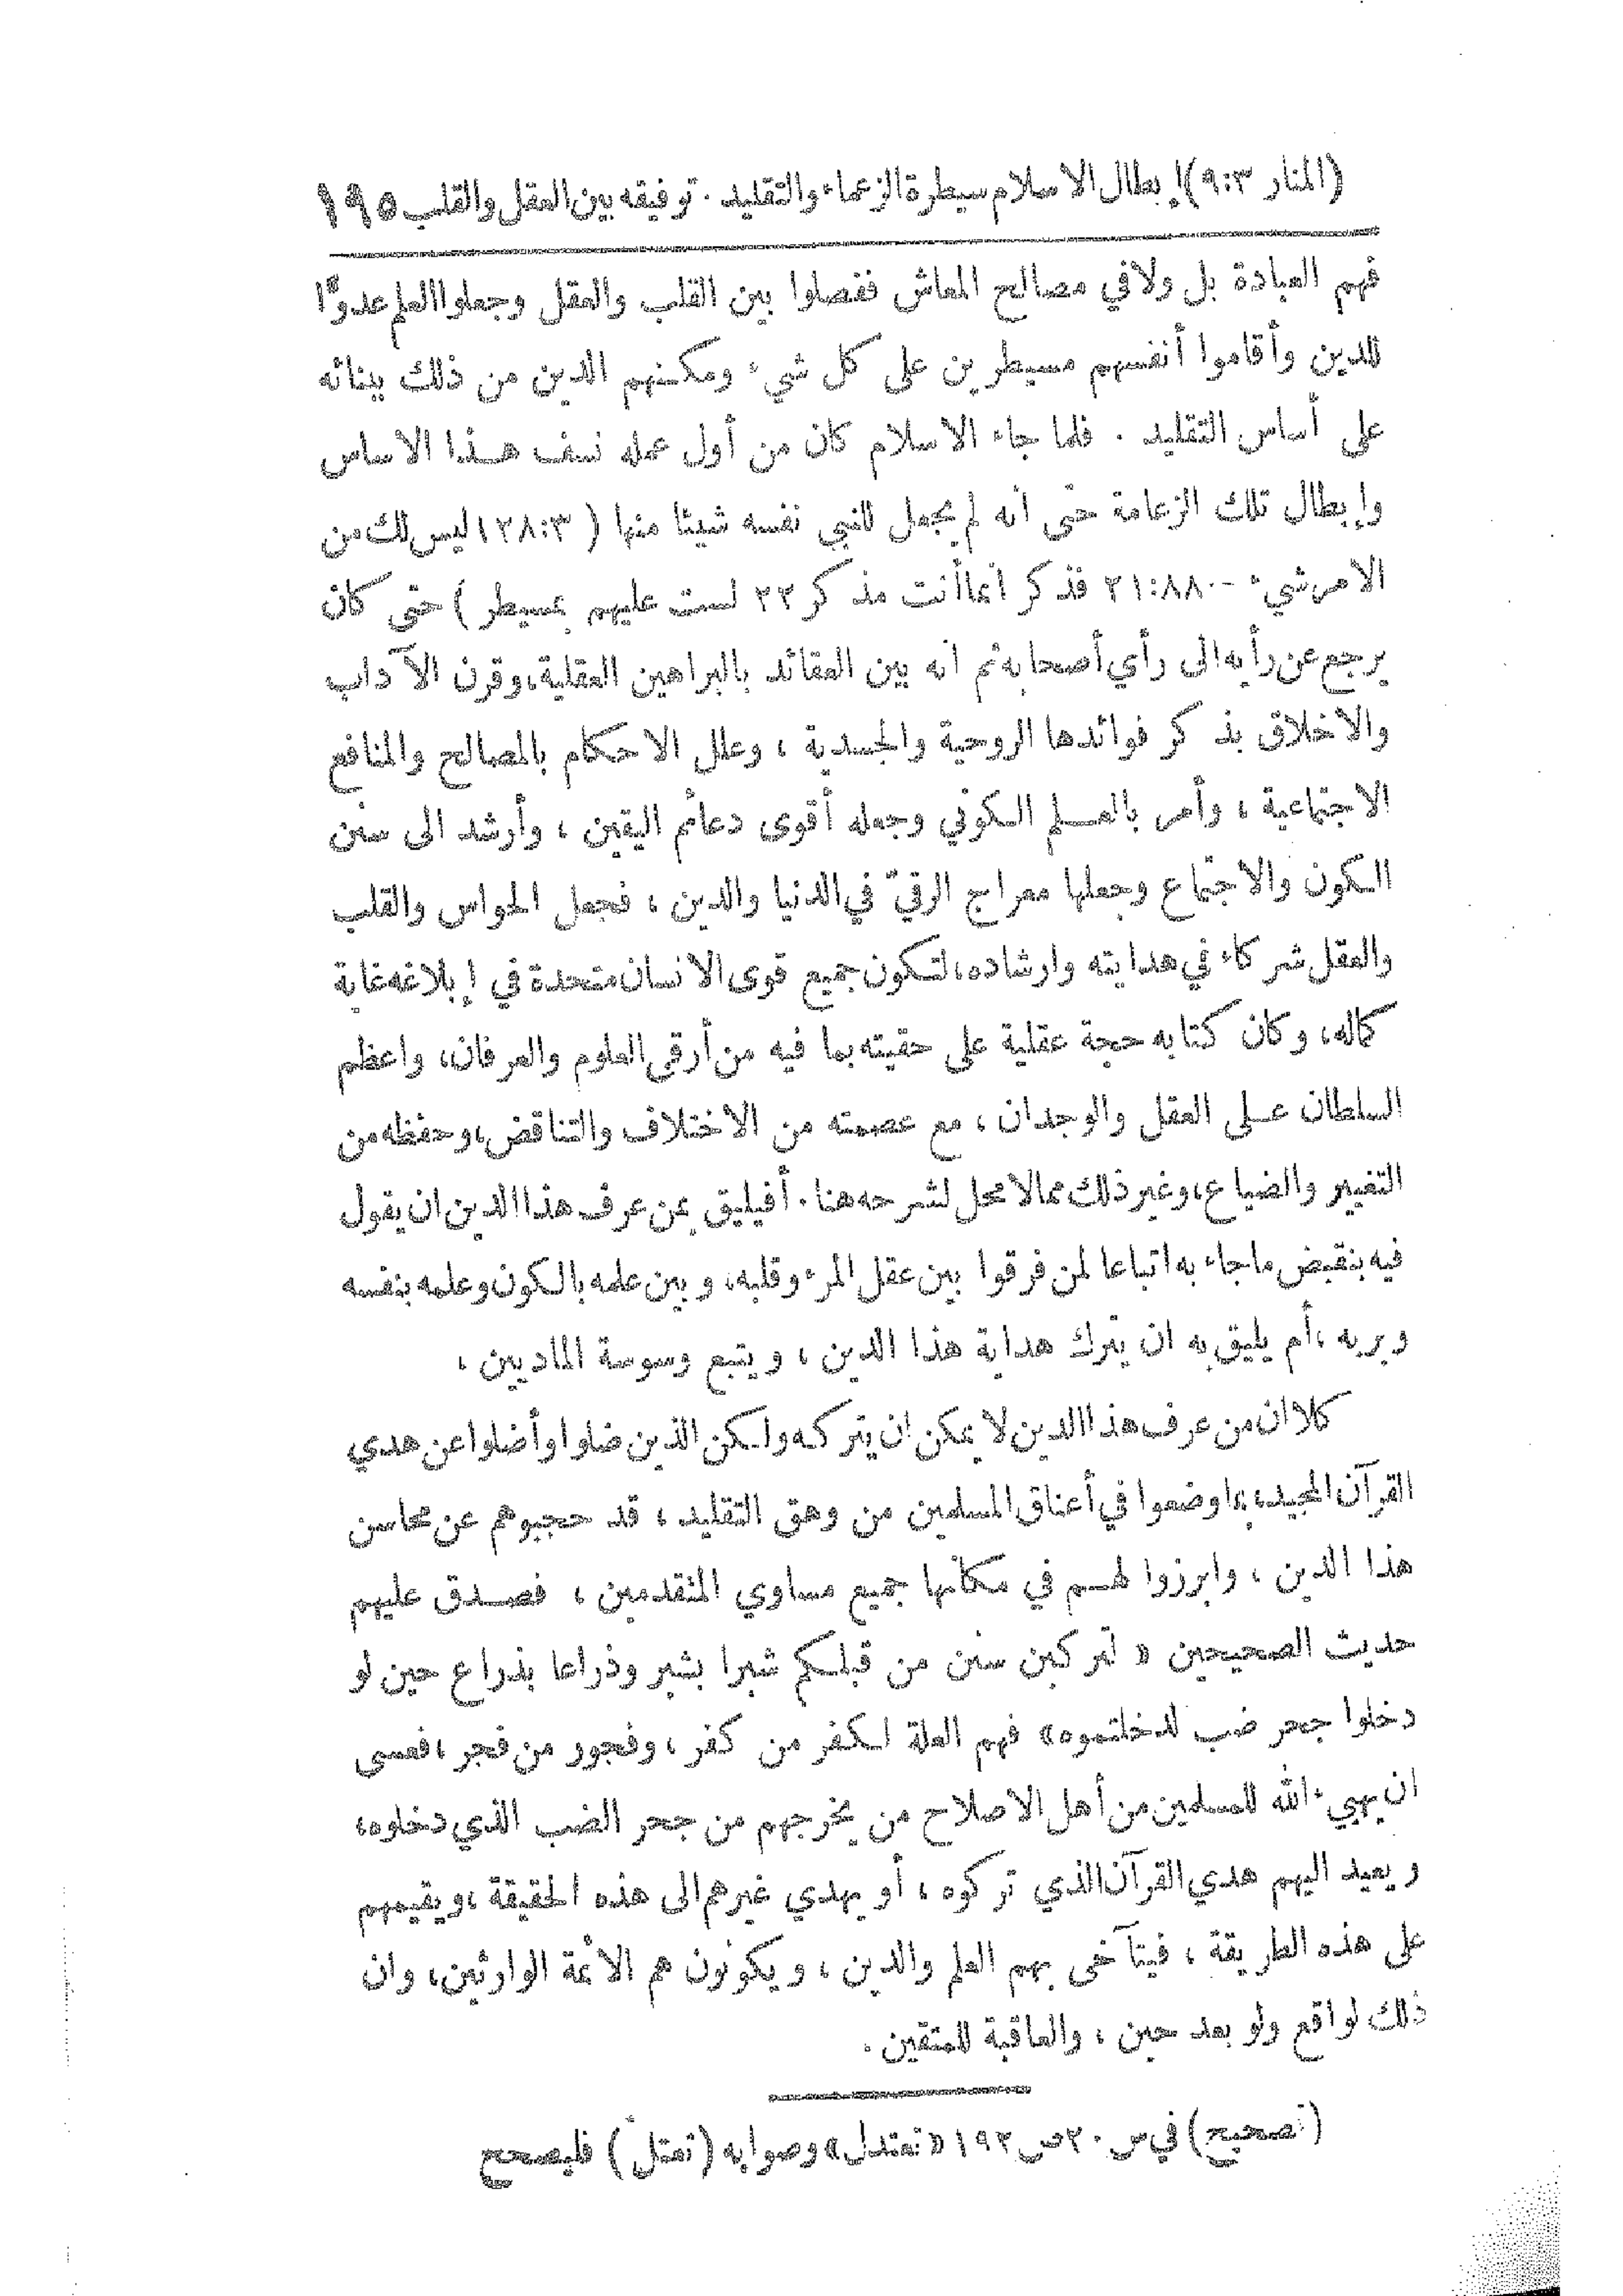 (المنار ٩:٣) إبطال الاسلام سيطرة الزعماء والتقليد . توفيقه بين العقل والقلب ١٩٥
فهم العبادة بل ولا في مصالح المعاش ففصلوا بين القلب والعقل وجعلوا العلم عدوًّا
للدين وأقاموا أنفسهم مسيطرين على كل شيء ومكنهم الدين من ذلك ببنائه
على أساس التقليد . فلما جاء الاسلام كان من أول عمله نسف هذا الاساس
وإبطال تلك الزعامة حتى انه لم يجعل للنبي نفسه شيئا منها ( ١٢٨:٣ ليس لك من
الامر شيء - ٢١:٨٨ فذكر انما أنت مذكر ٢٢ لست عليهم بمسيطر ) حتى كان
يرجع عن رأيه الى رأي أصحابه ثم انه بين العقائد بالبراهين العقلية، وقرن الآداب
والاخلاق بذكر فوائدها الروحية والجسدية ، وعلل الاحكام بالمصالح والمنافع
الاجتماعية ، وأمر بالعلم الكوني وجعله أقوى دعائم اليقين ، وأرشد الى سنن
الكون والاجتماع وجعلها معراج الرقيّ في الدنيا والدين ، فجعل الحواس والقلب
والعقل شركاء في هدايته وارشاده، لتكون جميع قوى الانسان متحدة في إبلاغه غاية
كماله، وكان كتابه حجة عقلية على حقيته بما فيه من أرقى العلوم والعرفان، واعظم
السلطان على العقل والوجدان ، مع عصمته من الاختلاف والتناقض، وحفظه من
التغيير والضياع، وغير ذلك مما لا محل لشرحه هنا . أفيليق بمن عرف هذا الدين ان يقول
فيه بنقيض ما جاء به اتباعا لمن فرقوا بين عقل المرء وقلبه، وبين علمه بالكون وعلمه بنفسه
وبربه ، أم يليق به ان يترك هداية هذا الدين ، ويتبع وسوسة الماديين ،
كلا ان من عرف هذا الدين لا يمكن ان يتركه ولكن الذين ضلوا وأضلوا عن هدي
القرآن المجيد، بما وضعوا في أعناق المسلمين من وهق التقليد ، قد حجبوهم عن محاسن
هذا الدين ، وابرزوا لهم في مكانها جميع مساوي المتقدمين ، فصدق عليهم
حديث الصحيحين « لتركبن سنن من قبلكم شبرا بشبر وذراعا بذراع حين لو
دخلوا جحر ضب لدخلتموه» فهم العلة لكفر من كفر ، وفجور من فجر ، فعسى
ان يهيء الله للمسلمين من أهل الاصلاح من يخرجهم من جحر الضب الذي دخلوه،
ويعيد اليهم هدي القرآن الذي تركوه ، أو يهدي غيرهم الى هذه الحقيقة ، ويقيمهم
على هذه الطريقة ، فيتآخى بهم العلم والدين ، ويكونون هم الائمة الوارثين، وان
ذلك لواقع ولو بعد حين ، والعاقبة للمتقين .
(تصحيح) في س ٢٠ ص ١٩٢ « تعتدل » وصوابه (تعتل) فليصحح